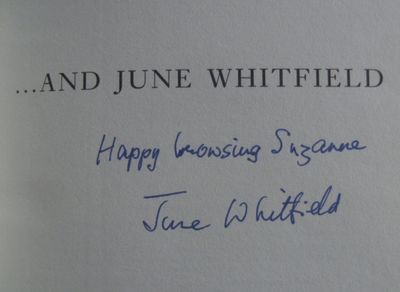 ...AND JUNE WHITFIELD
Happy browsing Suzanne
June Whitfield